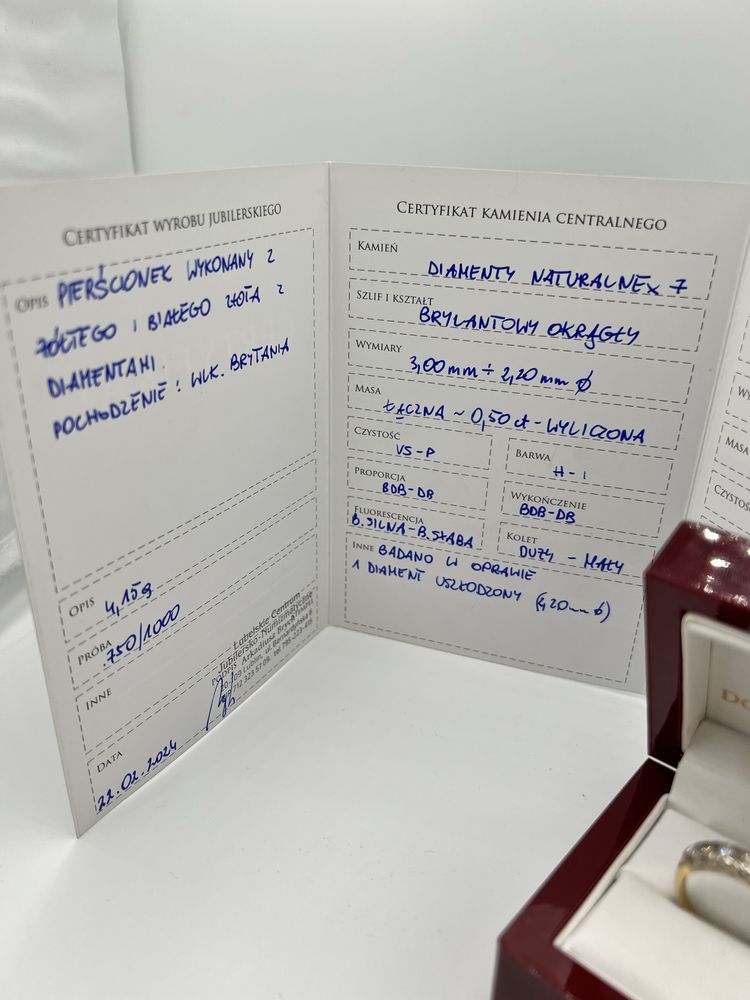 CERTYFIKAT WYROBU JUBILERSKIEGO
OPIS PIERŚCIONEK WYKONANY Z
ŻÓŁTEGO I BIAŁEGO ZŁOTA Z
DIAMENTAMI.
POCHODZENIE: WLK. BRYTANIA
OPIS 4,15g
PRÓBA .750/1000
INNE
Lubelskie Centrum
Jubilersko-Numizmatyczne
Arkadiusz
Lublin, ul. Bernardyńska
DATA
22.02.2024
CERTYFIKAT KAMIENIA CENTRALNEGO
KAMIEŃ
DIAMENTY NATURALNE x 7
SZLIF I KSZTAŁT
BRYLANTOWY OKRĄGŁY
WYMIARY
3,00mm ÷ 2,20mm ø
MASA
ŁĄCZNA ~ 0,50 ct - WYLICZONA
CZYSTOŚĆ
VS-P
BARWA
H-I
PROPORCJA
BDB-DB
WYKOŃCZENIE
BDB-DB
FLUORESCENCJA
B. SILNA-B. SŁABA
KOLET
DUŻY - MAŁY
INNE BADANO W OPRAWIE
1 DIAMENT USZKODZONY
WY
MASA
CZYSTOŚ